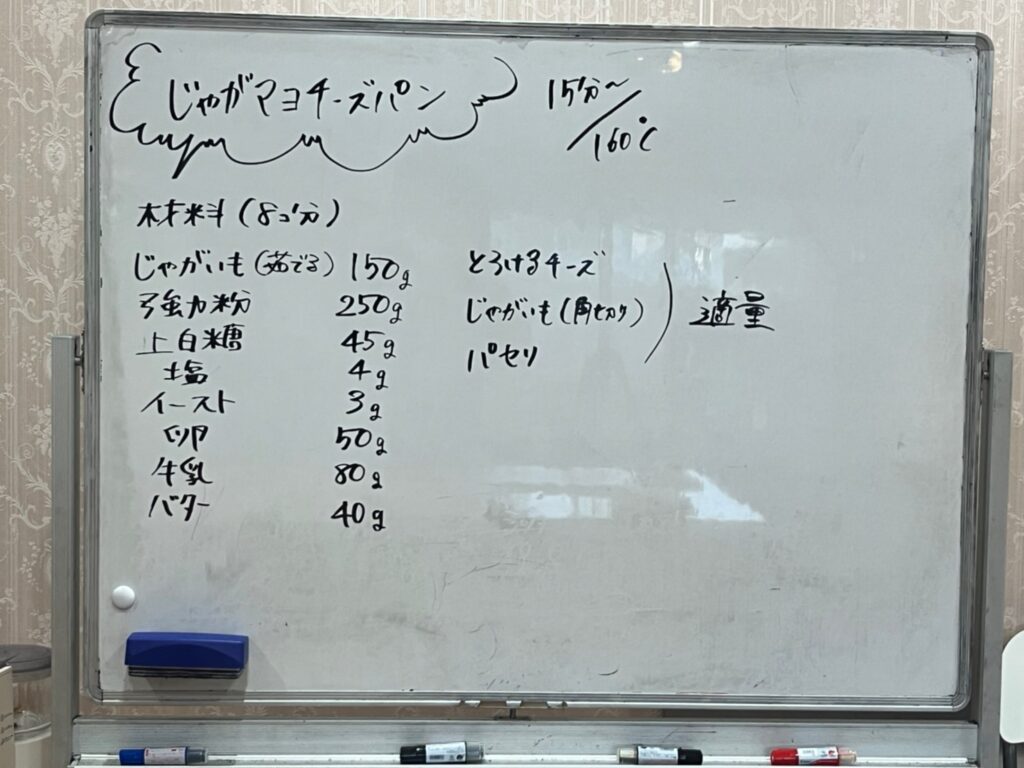 じゃがマヨチーズパン
15分〜/160℃
材料(8コ分)
じゃがいも(茹でる) 150g
強力粉 250g
上白糖 45g
塩 4g
イースト 3g
卵 50g
牛乳 80g
バター 40g
とろけるチーズ
じゃがいも(角切り)
パセリ
適量